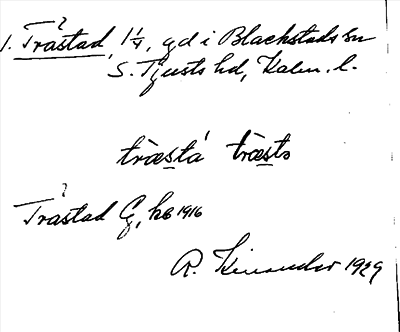 1. Tråstad, 1 1/4, gd i Blackstads sn
S. Tjusts hd, Kalm. l.
træsta træsto
Tråstad G, hc 1916
R. Kinander 1929